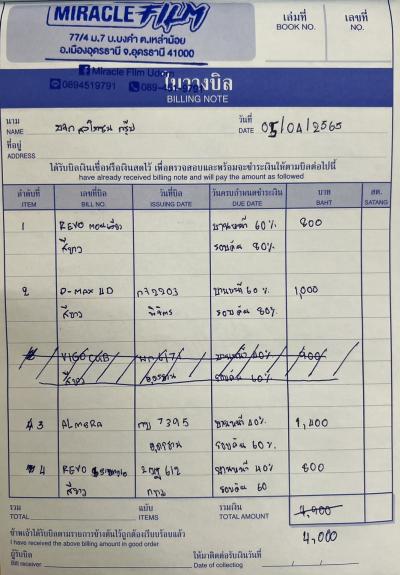 MIRACLE FILM
77/4 ม.7 บ.บงคำ ต.เหล่าน้อย
อ.เมืองอุดรธานี จ.อุดรธานี 41000
เล่มที่ เลขที่
BOOK NO. NO.
Miracle Film Udorn
0894519791
ใบวางบิล
BILLING NOTE
นาม
NAME
วันที่ 05/04/2565
DATE
ที่อยู่
ADDRESS
ได้รับบิลเงินเชื่อหรือเงินสดไว้ เพื่อตรวจสอบและพร้อมจะชำระเงินให้ตามบิลต่อไปนี้
have already received billing note and will pay the amount as followed
ลำดับที่ เลขที่บิล วันที่บิล วันครบกำหนดชำระเงิน บาท สต.
ITEM BILL NO. ISSUING DATE DUE DATE BAHT SATANG
1 REVO ตอนเดียว บานหน้า 60% 800
สีขาว รอบคัน 80%
2 D-MAX 4D กว2203 บานหน้า 60% 1,000
สีขาว พิจิตร รอบคัน 80%
VIGO CAB 617 บานหน้า 40% 900
อุดรธานี รอบคัน 60%
3 ALMERA 7395 บานหน้า 40% 1,400
อุดรธานี รอบคัน 60%
4 REVO 612 บานหน้า 40% 800
สีขาว กทม รอบคัน 60
รวม ฉบับ รวมเงิน 4,900
TOTAL ITEMS TOTAL AMOUNT
4,000
ข้าพเจ้าได้รับบิลตามรายการข้างต้นไว้ถูกต้องเรียบร้อยแล้ว
I have received the above amount in good order
ผู้รับบิล ให้มาติดต่อรับเงินวันที่
Bill receiver Date of collecting / /